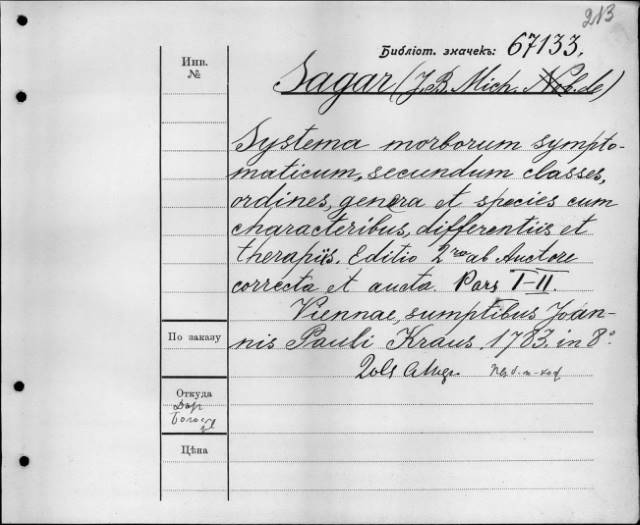 213
Библіот. значекъ: 67133.
Инв.
№
Sagar (J. B. Mich. Nob. de)
Systema morborum sympto-
maticum, secundum classes,
ordines, genera et species cum
characteribus, differentiis et
therapiis. Editio 2ro ab Auctore
correcta et aucta. Pars I-II.
Viennae, sumptibus Joan-
nis Pauli Kraus. 1783. in 8°
По заказу
Откуда
Дар
Цѣна